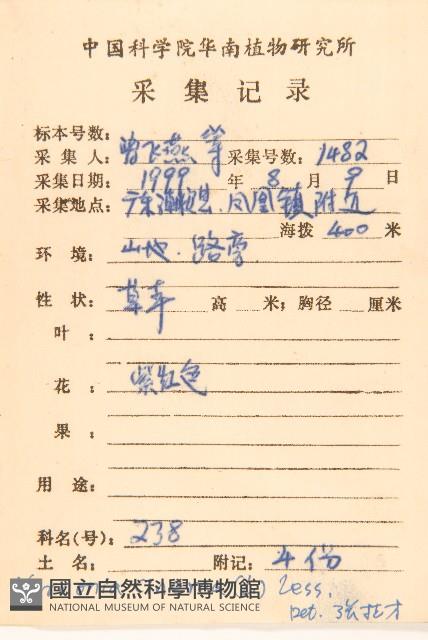 中国科学院华南植物研究所
采集记录
标本号数：
采集人：曾飞燕 等 采集号数：1482
采集日期：1999 年 8 月 9 日
采集地点：广东 县.凤凰镇附近
海拨 400 米
环境：山地.路旁
性状：草本 高 米；胸径 厘米
叶：
花：紫红色
果：
用途：
科名(号)：238
土名： 附记：4份
(L) Less.
國立自然科學博物館
NATIONAL MUSEUM OF NATURAL SCIENCE
Det.